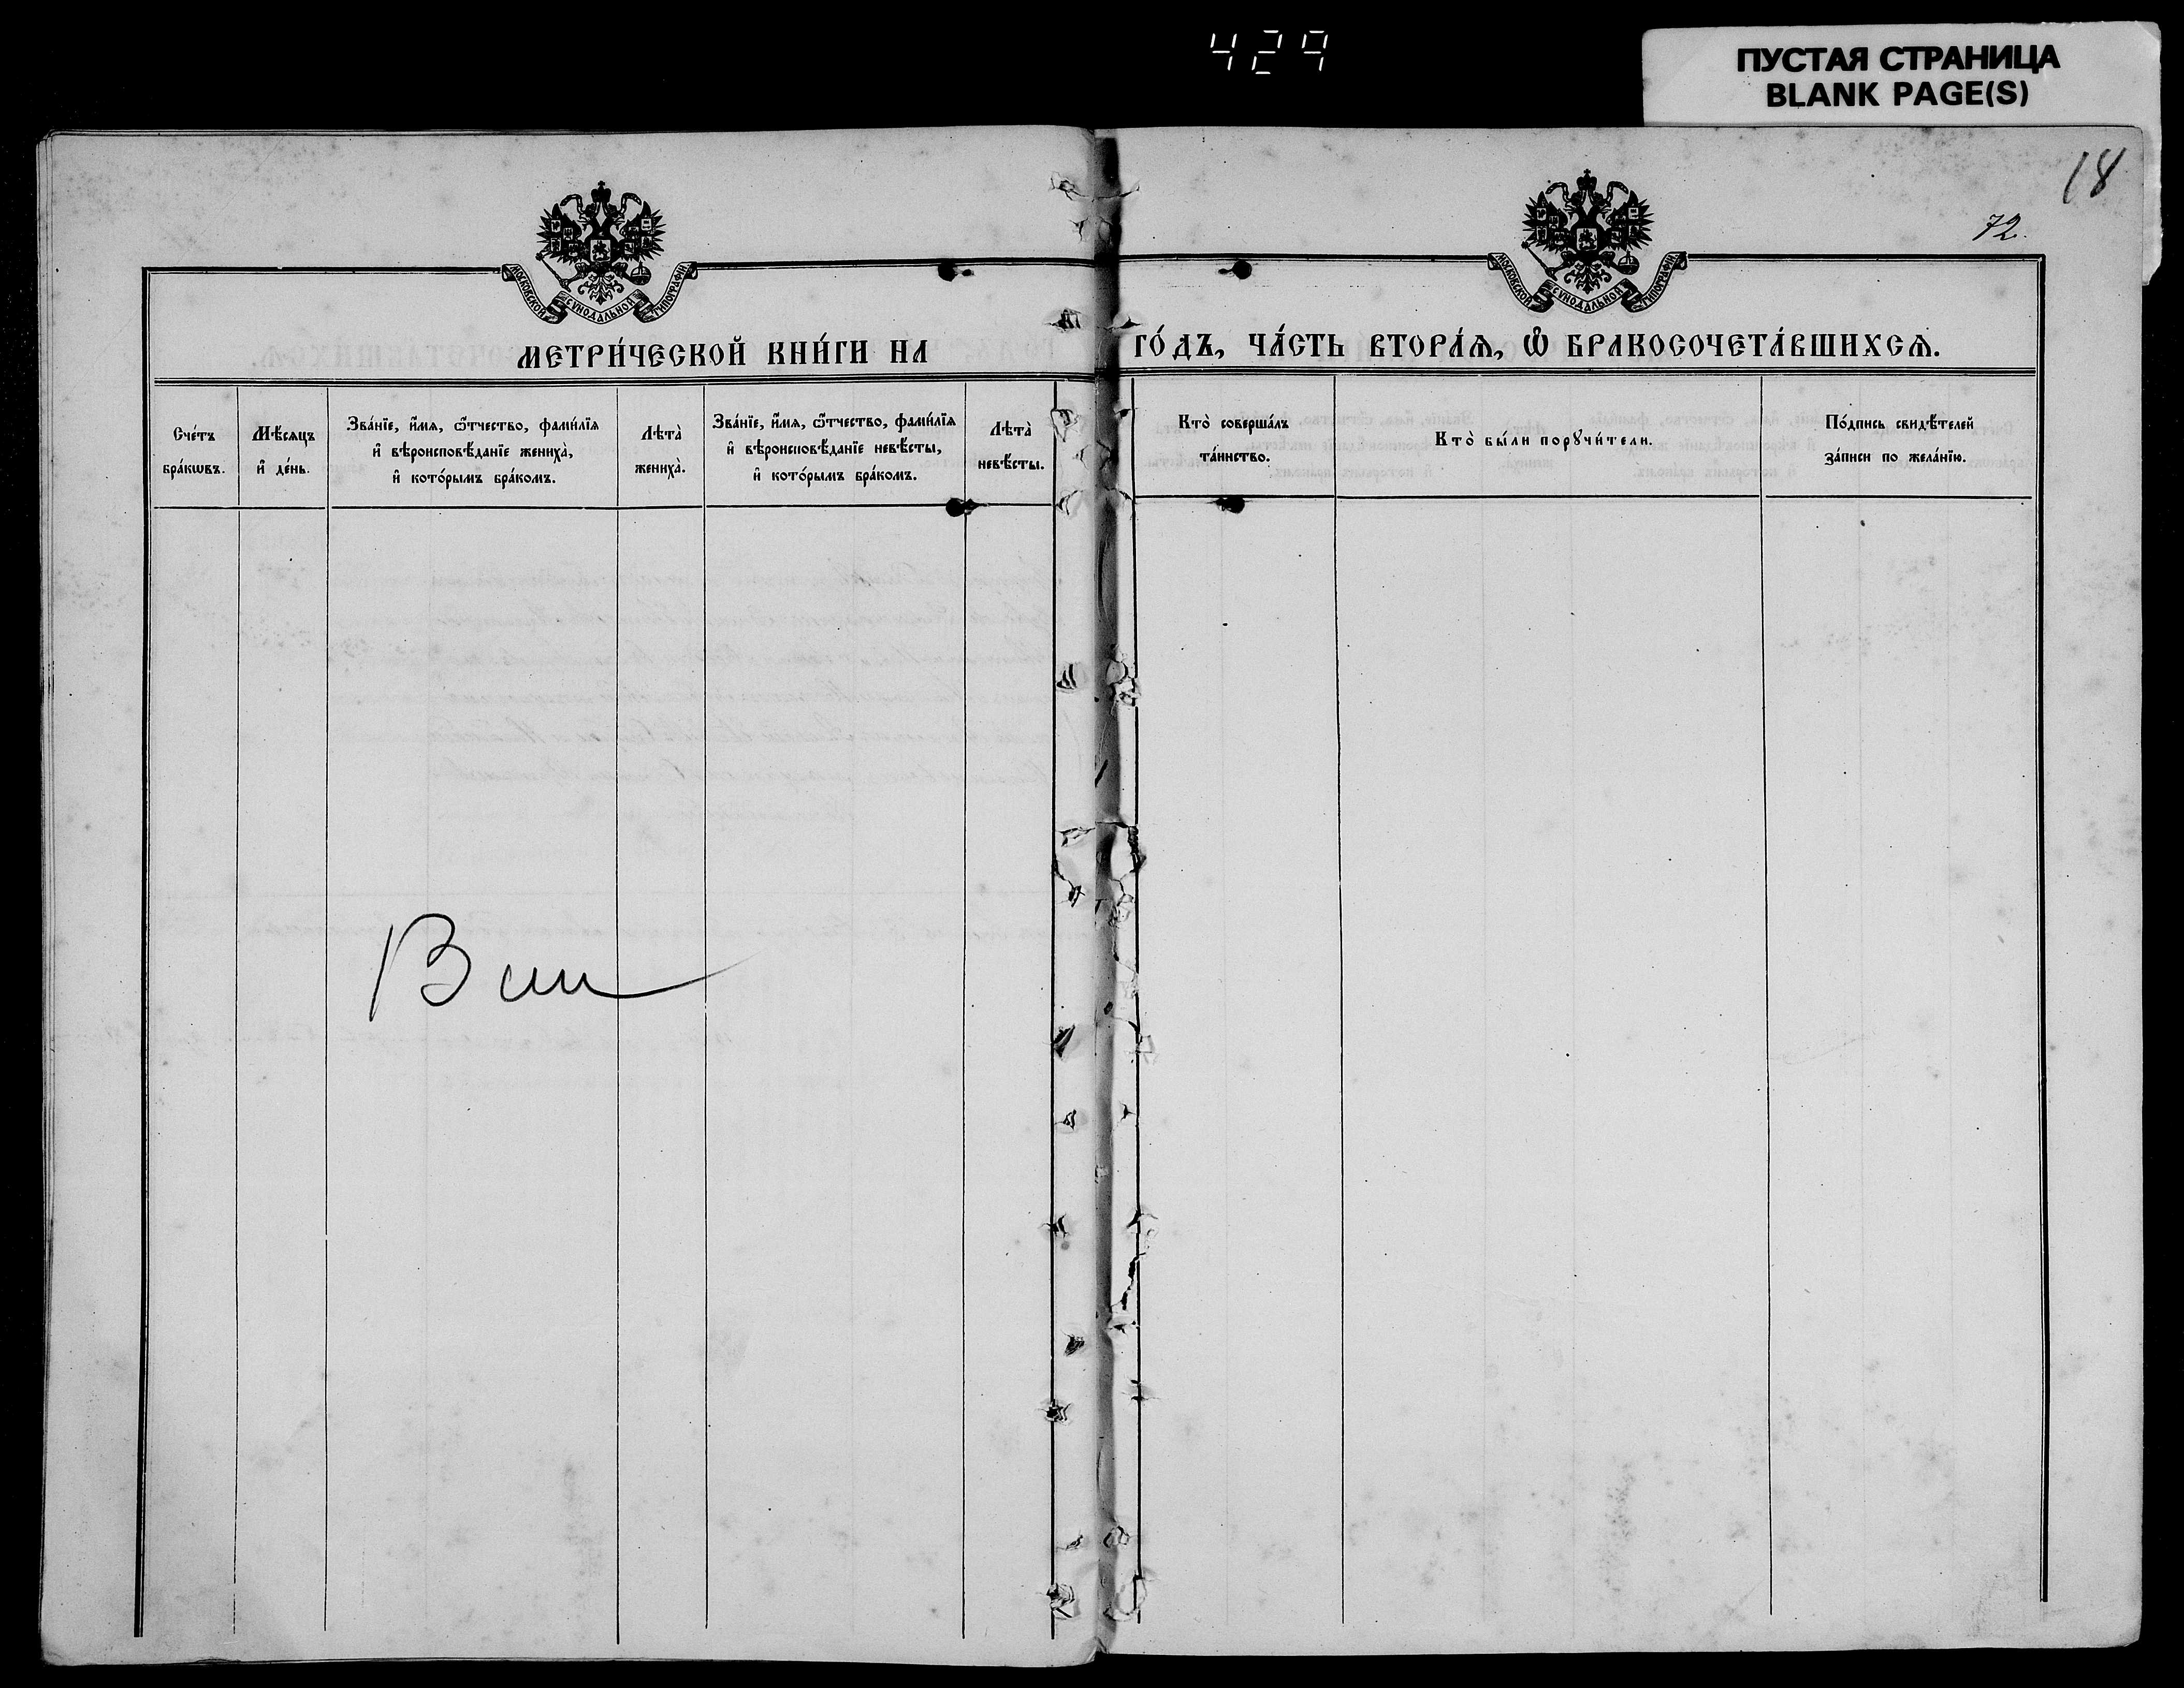 429
ПУСТАЯ СТРАНИЦА
BLANK PAGE(S)
18
72.
МОСКОВСКОЙ СѴНОДАЛЬНОЙ ТИПОГРАФІИ
МОСКОВСКОЙ СѴНОДАЛЬНОЙ ТИПОГРАФІИ
МЕТРИ́ЧЕСКОЙ КНИ́ГИ НА ГО́ДЪ, ЧА́СТЬ ВТОРА́Ѧ, Ѽ БРАКОСОЧЕТА́ВШИХСѦ.
Сче́тъ
бра́кѡвъ.
Мѣ́сяцъ
и҆ де́нь.
Зва́нїе, и҆́мѧ, ѻ҆́тчество, фами́лїѧ
и҆ вѣроисповѣ́данїе жениха̀,
и҆ кото́рымъ бра́комъ.
Лѣта̀
жениха̀.
Зва́нїе, и҆́мѧ, ѻ҆́тчество, фами́лїѧ
и҆ вѣроисповѣ́данїе невѣ́сты,
и҆ кото́рымъ бра́комъ.
Лѣта̀
невѣ́сты.
Кто̀ соверша́лъ
та́инство.
Кто̀ бы́ли порꙋчи́тели.
По́дпись свидѣ́телей
за́писи по жела́нїю.